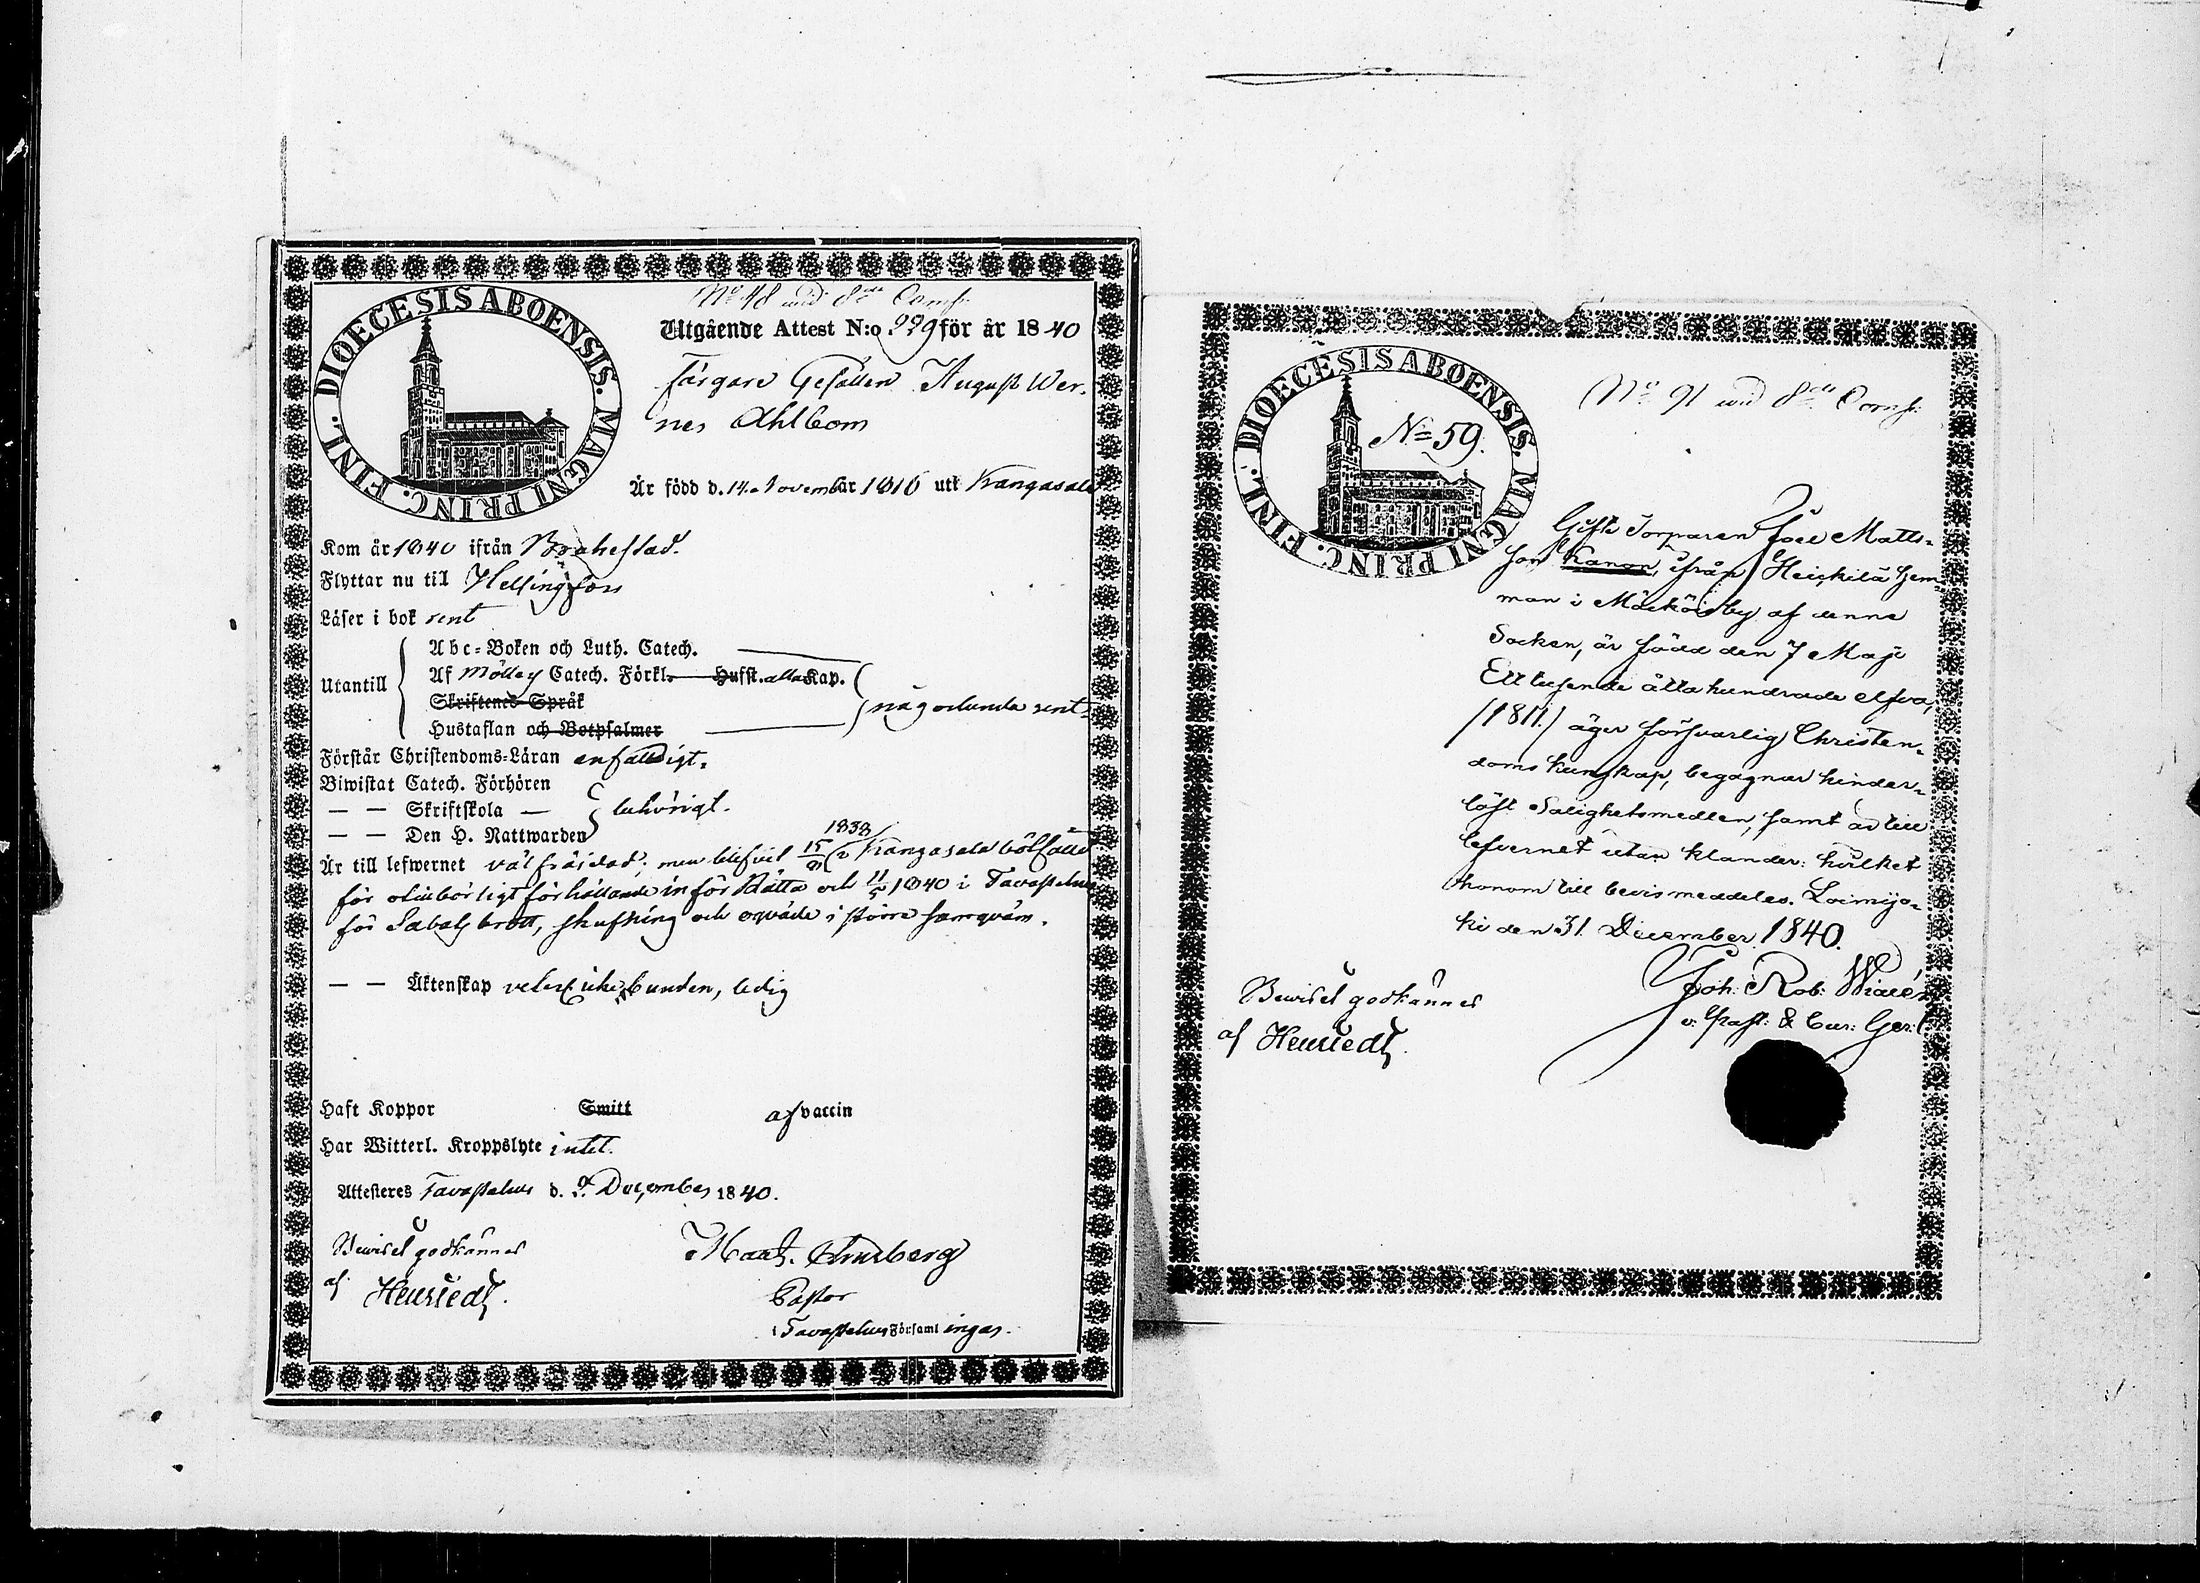 DIOECESIS ABOENSIS. MAGNI PRINC. FINL.
No 48 wid 8de Comp:
Utgående Attest N:o 229 för år 1840
Färgare Gesällen August Wer-
ner Ahlbom
Är född d. 14 November 1816 uti Kangasala
Kom år 1840 ifrån Brahestad.
Flyttar nu til Helsingfors
Läser i bok rent
Utantill
Abc-Boken och Luth. Catech.
Af Möllers Catech. Förkl. Hufst. alla Kap.
Skriftenes Språk
Hustaflan och Botpsalmer
någorlunda rent.
Förstår Christendoms-Läran enfaldigt.
Biwistat Catech. Förhören
— — Skriftskola —
— — Den H. Nattwarden
behörigt.
Är till lefwernet välfräjdad; men blifvit 15/2 1838 i Kangasala bötfälld
för otilbörligt förhållande inför Rätta och 11/5 1840 i Tavastehus
för Sabats brott, skuffning och oqväde i större samqväm.
— — Äktenskap veterl. icke bunden, ledig
Haft Koppor Smitt af vaccin
Har Witterl. Kroppslyte intet.
Attesteres Tavastehus d. 9 December 1840.
Beviset godkännes
af
Pastor
i Tavastehus Församlingar.
DIOECESIS ABOENSIS. MAGNI PRINC. FINL.
No 59.
No 91 wid 8de Comp:
Gifte Torparen Joel Matts-
son Kanon, ifrån Heickilä hem-
man i Mäckäis by af denna
Socken, är född den 7 Maji
Ett tusende åtta hundrade elfva,
/1811./ äger försvarlig Christen-
doms kunskap, begagnar hinder-
löst Salighetsmedlen, samt är till
lefvernet utan klander: hvilket
honom till bevis meddeles. Loimijo-
ki den 31 December 1840.
Joh: Rob: Widén
v: Past: & Cur: Ger:
Beviset godkännes
af